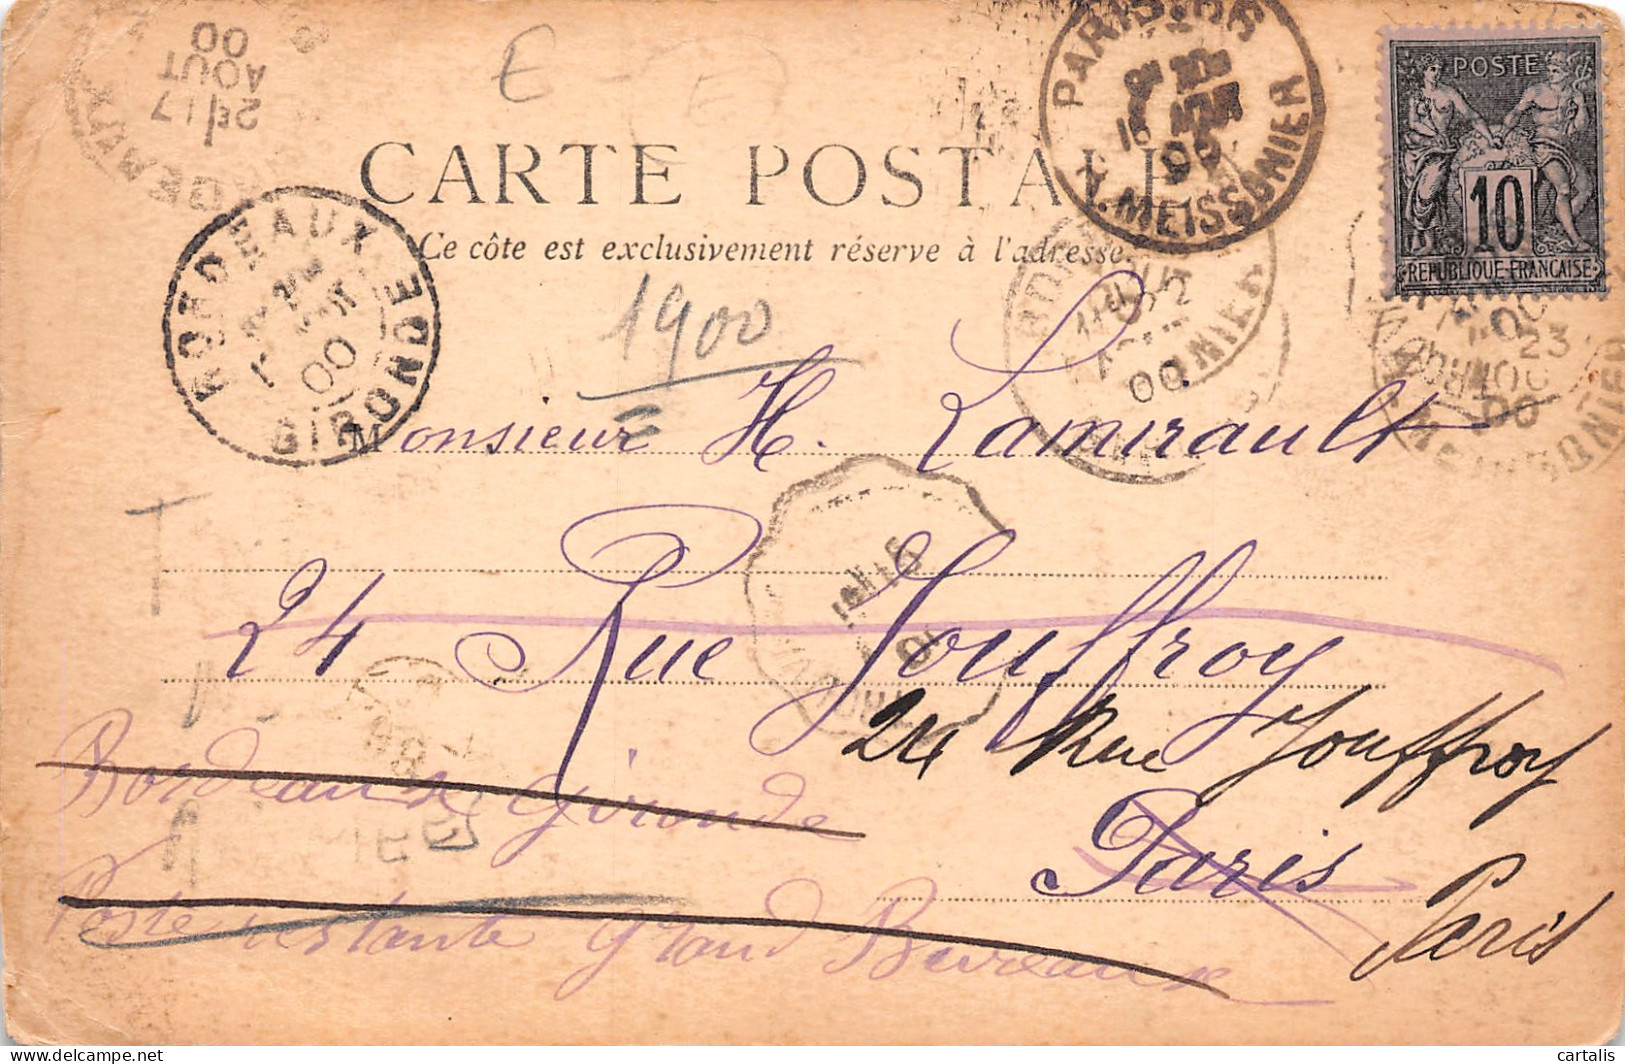 2E/17
AOUT
00
E
PARIS
R. MEISSONIER
POSTE
10
REPUBLIQUE FRANÇAISE
CARTE POSTALE
Ce côte est exclusivement réserve à l'adresse.
BORDEAUX
GIRONDE
00
1900
00
23
00
Monsieur H. Lamirault
24 Rue Jouffroy
24 Rue Jouffroy
Bordeaux Gironde
Paris
Paris
Poste restante Grand Bureau
cartalis